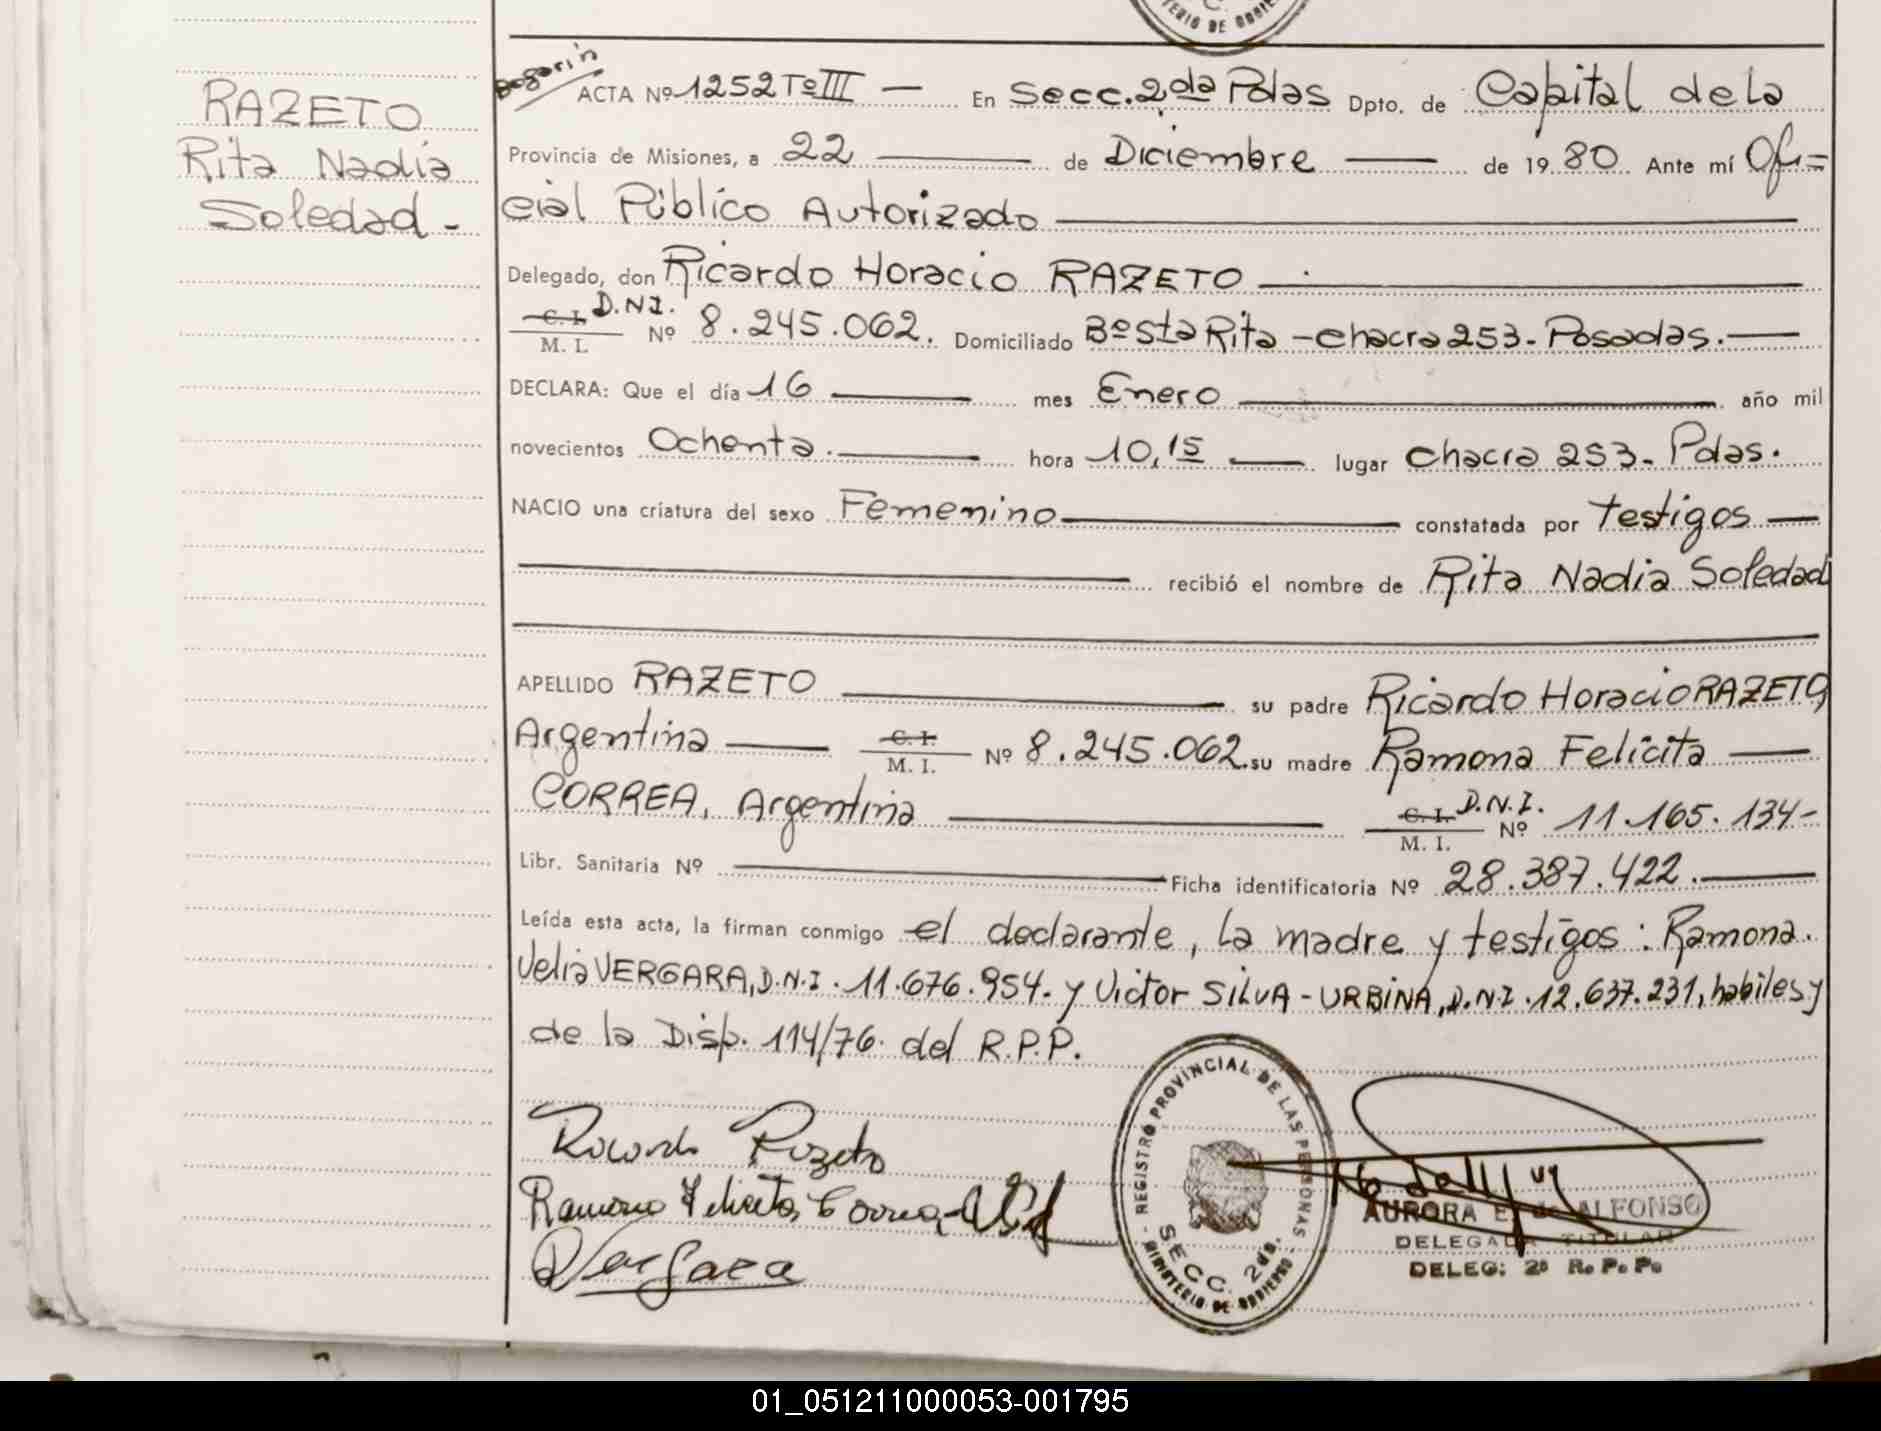 MINISTERIO DE GOBIERNO
RAZETO
Rita Nadia
Soledad -
Bogarin
ACTA Nº 1252 Tº III — En Secc. 2da Pdas Dpto. de Capital de la
Provincia de Misiones, a 22 — de Diciembre — de 19 80 Ante mí Ofi=
cial Público Autorizado
Delegado, don Ricardo Horacio RAZETO
C. I. D.N.I.
M. I. Nº 8.245.062. Domiciliado Bº Sta Rita - chacra 253 - Posadas. —
DECLARA: Que el día 16 — mes Enero — año mil
novecientos Ochenta. — hora 10,15 — lugar chacra 253 - Pdas.
NACIO una criatura del sexo Femenino — constatada por testigos —
— recibió el nombre de Rita Nadia Soledad
APELLIDO RAZETO — su padre Ricardo Horacio RAZETO,
Argentina — C. I. M. I. Nº 8.245.062. su madre Ramona Felicita —
CORREA, Argentina — C. I. D.N.I. M. I. Nº 11.165.134-
Libr. Sanitaria Nº — Ficha identificatoria Nº 28.387.422. —
Leída esta acta, la firman conmigo el declarante, la madre y testigos: Ramona
Velia VERGARA, D.N.I. 11.676.954- y Victor SILVA - URBINA, D.N.I. 12.637.231, habiles y
de la Disp. 114/76 del R.P.P.
Ricardo Razeto
Ramona Felicita Correa
Vergara
REGISTRO PROVINCIAL DE LAS PERSONAS
SECC. 2da.
MINISTERIO DE GOBIERNO
AURORA E. de ALFONSO
DELEGADA TITULAR
DELEG: 2ª R. P. P.
01_051211000053-001795